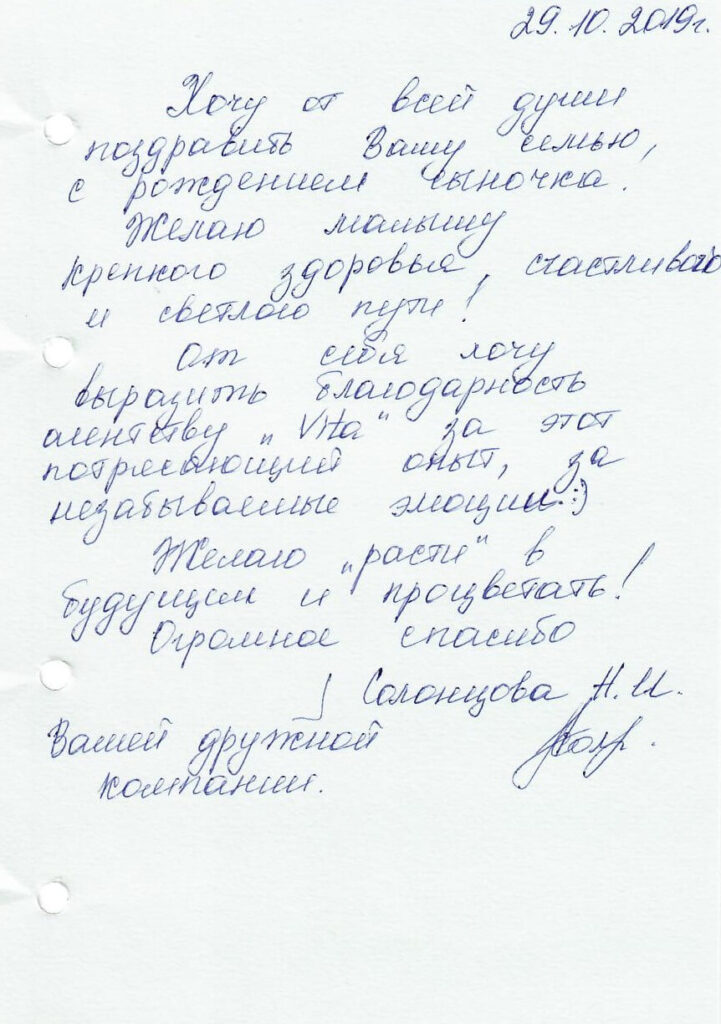 29.10.2019г.
Хочу от всей души
поздравить Вашу семью,
с рождением сыночка.
Желаю малышу
крепкого здоровья, счастливого
и светлого пути!
От себя хочу
выразить благодарность
агентству „Vita“ за этот
потрясающий опыт, за
незабываемые эмоции:)
Желаю „расти“ в
будущем и процветать!
Огромное спасибо
Солонцова Н.И.
Вашей дружной
компании.